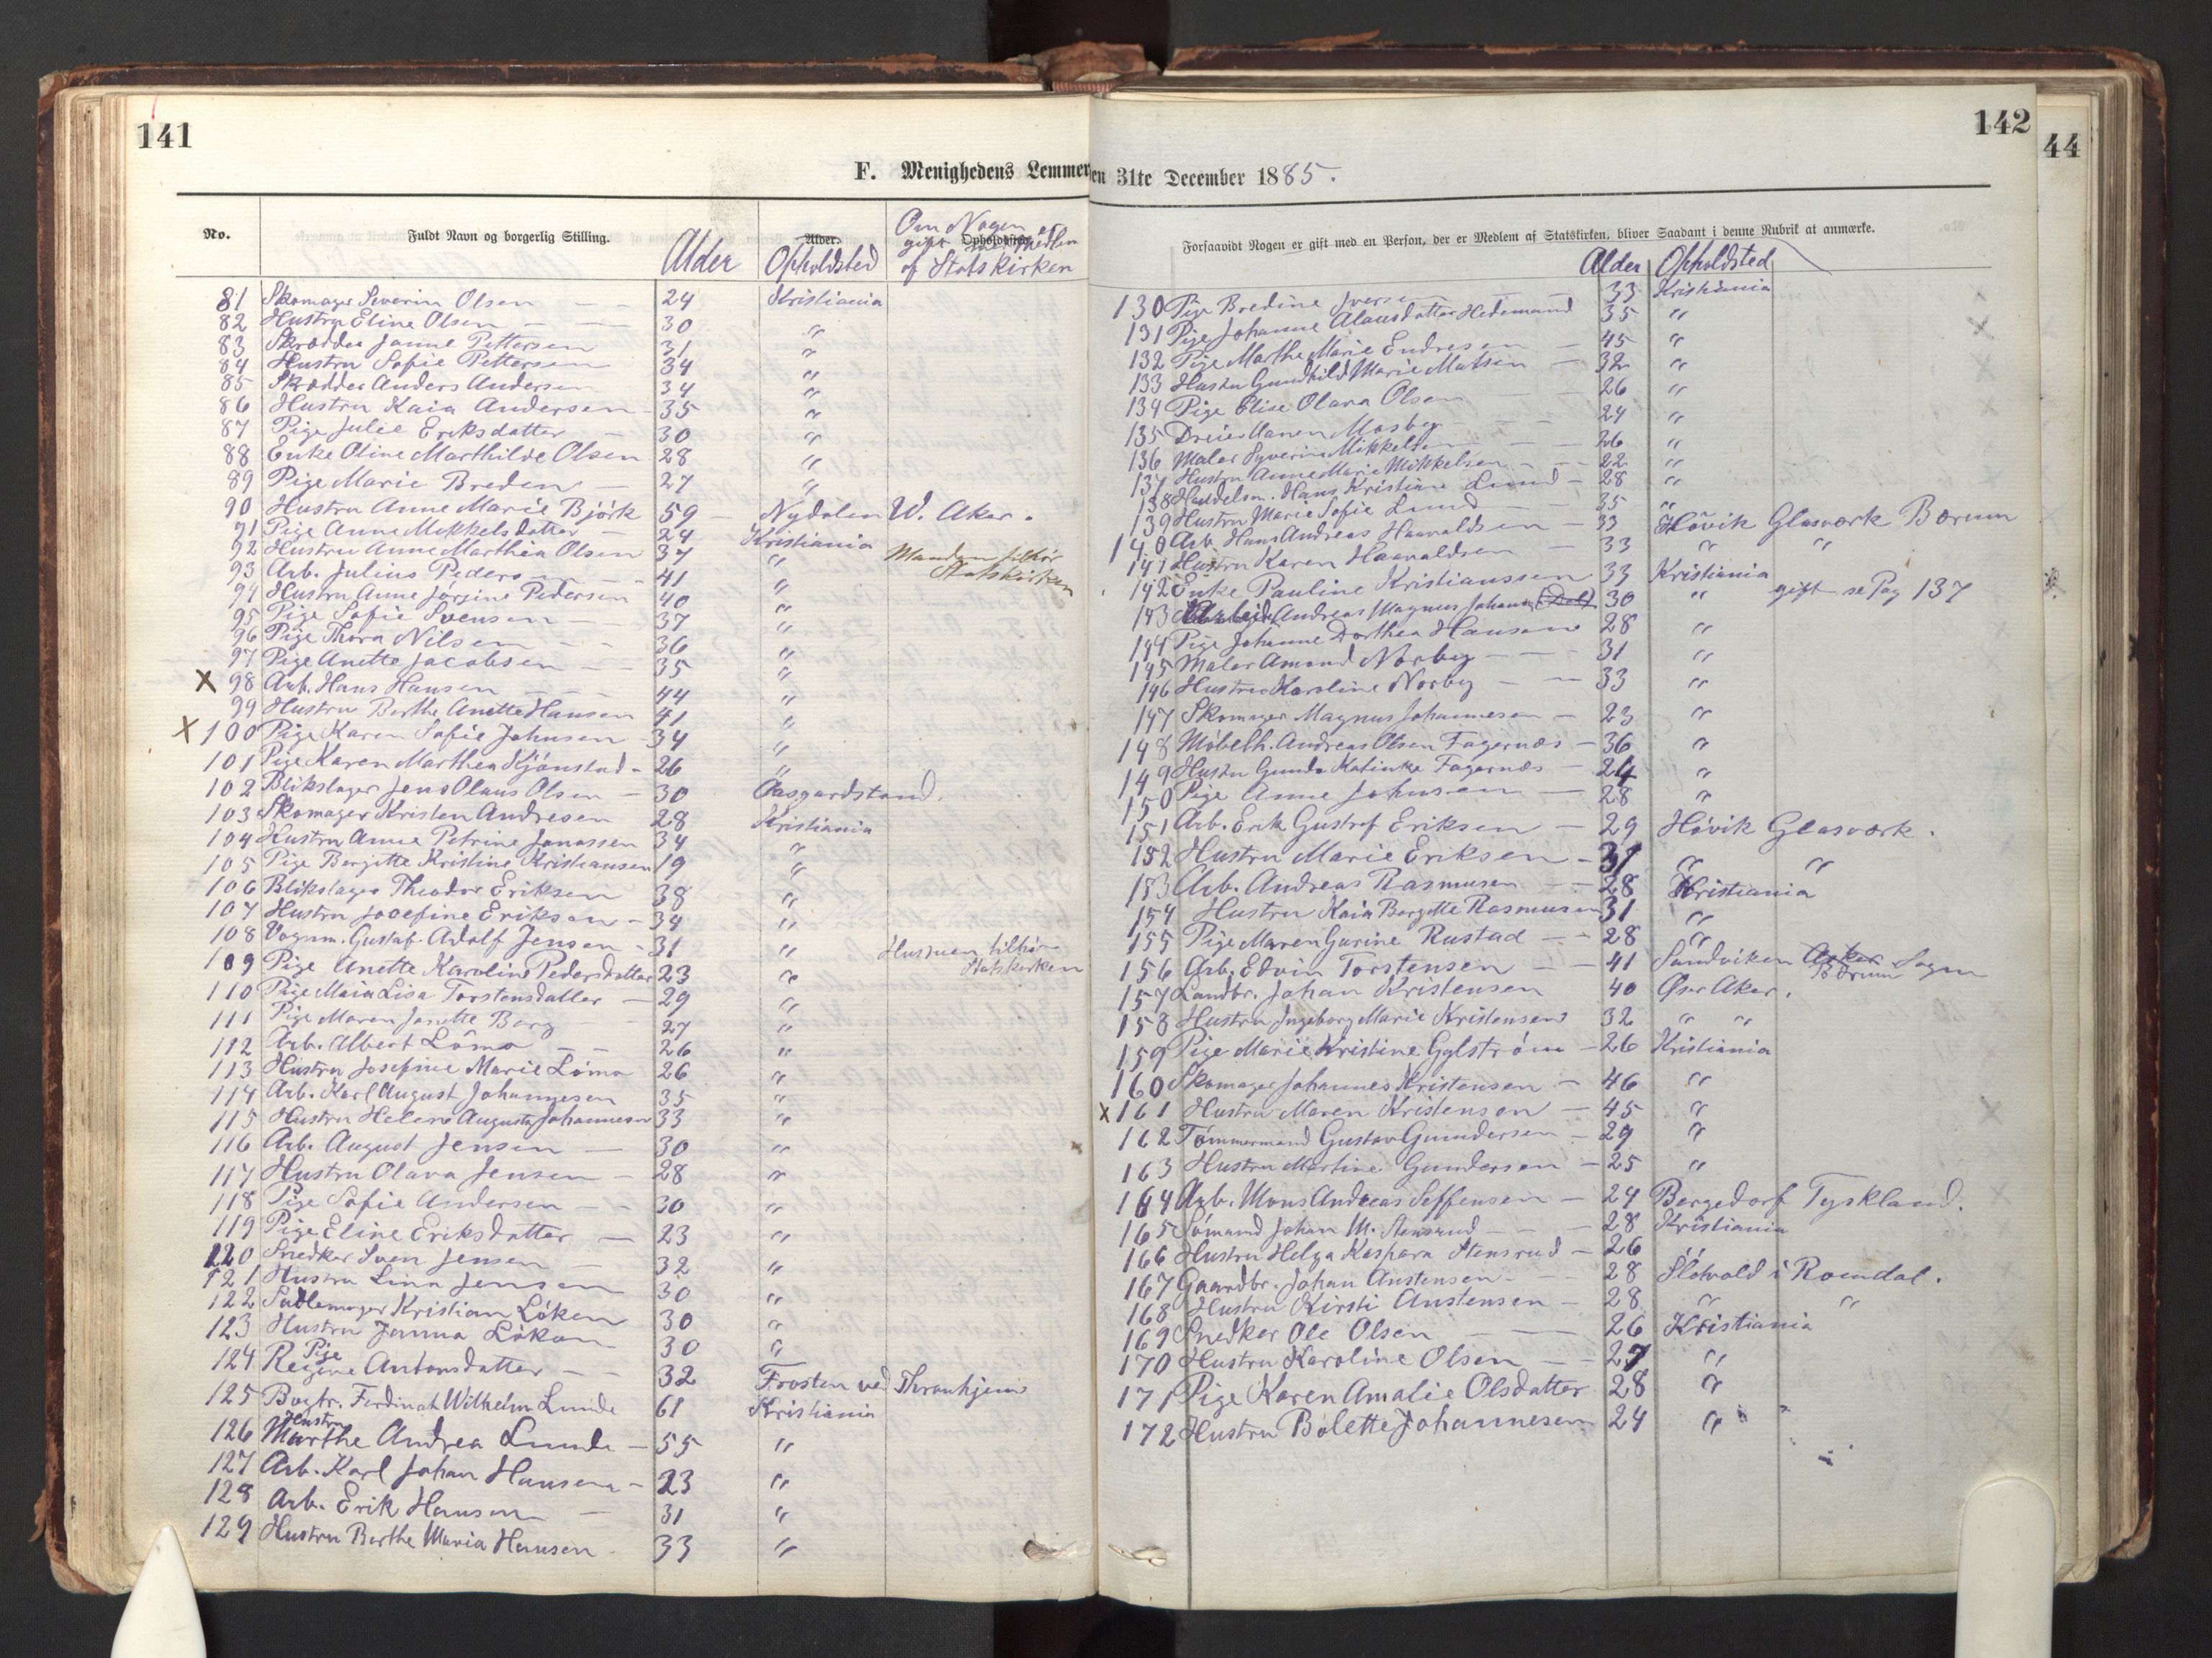 141
142
44
F. Menighedens Lemmer den 31te December 1885.
No.
Fuldt Navn og borgerlig Stilling.
Alder
Alder.
Opholdsted
Opholdssted.
Om Nogen er
gift med Medlem
af Statskirken
81 Skomager Severin Olsen — — 24 Kristiania
82 Hustru Eline Olsen — — 30 "
83 Skrædder Janne Pettersen 31 "
84 Hustru Sofie Pettersen 34 "
85 Skrædder Anders Andersen 34 "
86 Hustru Kaia Andersen — 35 "
87 Pige Julie Eriksdatter — 30 "
88 Enke Oline Marthilde Olsen 28 "
89 Pige Marie Breden — 27 "
90 Hustru Anne Marie Björk 59 — Nydalen W. Aker.
91 Pige Anne Mikkelsdatter — 24 Kristiania
92 Hustru Anne Marthea Olsen 37 " Manden tilhör Statskirken
93 Arb. Julius Peders — 41 "
94 Hustru Anne Jörgine Pedersen 40 "
95 Pige Sofie Svensen — 37 "
96 Pige Thora Nilsen — — 36 "
97 Pige Anette Jacobsen — — 35 "
X 98 Arb. Hans Hansen — — 44 "
99 Hustru Berthe Anette Hansen 41 "
X 100 Pige Karen Sofie Johnsen — 34 "
101 Pige Karen Marthea Kjönstad - 26 "
102 Blikslager Jens Olaus Olsen — 30 Aasgardstand.
103 Skomager Kristen Andresen 28 Kristiania
104 Hustru Anne Petrine Janassen 34 "
105 Pige Bergitte Kristine Kristiansen 19 "
106 Blikslager Theodor Eriksen 38 "
107 Hustru Josefine Eriksen - 34 "
108 Vognm. Gustaf Adolf Jensen - 31 " Hustruen tilhör Statskirken
109 Pige Anette Karoline Pedersdatter 23 "
110 Pige Maia Lisa Torstensdatter — 29 "
111 Pige Maren Janette Berg — 27 "
112 Arb. Albert Lömo — — 26 "
113 Hustru Josefine Marie Lömo 26 "
114 Arb. Karl August Johannesen 35 "
115 Hustru Helene Augusta Johannesen 33 "
116 Arb. August Jensen — 30 "
117 Hustru Olava Jensen - 28 "
118 Pige Sofie Andersen — - 30 "
119 Pige Eline Eriksdatter — 23 "
120 Snedker Sven Jensen — 32 "
121 Hustru Lina Jensen 30 "
122 Sadlemager Kristian Löken 30 "
123 Hustru Janna Löken 30 "
124 Pige Regine Antonsdatter — 32 Frosten ved Thrønhjem
125 Bogtr. Ferdinat Wilhelm Lunde 61 Kristiania
126 Hustru Marthe Andrea Lunde — 55 "
127 Arb. Karl Johan Hansen - 23 "
128 Arb. Erik Hansen — 31 "
129 Hustru Berthe Maria Hansen 33 "
Forsaavidt Nogen er gift med en Person, der er Medlem af Statskirken, bliver Saadant i denne Rubrik at anmærke.
Alder Opholdsted
130 Pige Bredine Iversen — 33 Kristiania
131 Pige Johanne Alausdatter Hedemand 35 "
132 Pige Marthe Marie Endresen — 45 "
133 Hustru Gundhild Marie Matsen — 32 "
134 Pige Elise Olava Olsen — 26 "
135 Dreier Maren Mosby — 24 "
136 Maler Syverin Mikkelsen — 26 "
137 Hustru Anne Marie Mikkelsen — — 22 "
138 Handelsm. Hans Kristian Lund — 28 "
139 Hustru Marie Sofie Lund — 35 "
140 Arb. Hans Andreas Haavaldsen — 33 Hövik Glasværk Bærum
141 Hustru Karen Haavaldsen — 33 " "
142 Enke Pauline Kristianssen 33 Kristiania
143 Arbeider Andreas Magnus Johans (Dal) 30 " gift se Pag 137
144 Pige Johanne Dorthea Hansen 28 "
145 Maler Amand Norby — — 31 "
146 Hustru Karoline Norby — — 33 "
147 Skomager Magnus Johannesen — 23 "
148 Möbelh. Andreas Olsen Fagernæs — 36 "
149 Hustru Gunda Katinka Fagernæs — 24 "
150 Pige Anne Johnsen — 28 "
151 Arb. Erik Gustaf Eriksen — 29 Hövik Glasværk.
152 Hustru Marie Eriksen — 31 " "
153 Arb. Andreas Rasmusen — — 28 Kristiania
154 Hustru Kaia Bergitte Rasmusen 31 "
155 Pige Maren Gurine Rustad — - 28 "
156 Arb. Edvin Torstensen — — 41 Sandviken Asker Bærum Sogn
157 Landbr. Johan Kristensen 40 Øsr Aker.
158 Hustru Ingeborg Marie Kristensen 32 " "
159 Pige Marie Kristine Gylström — 26 Kristiania
160 Skomager Johannes Kristensen — 46 "
X 161 Hustru Maren Kristensen — 45 "
162 Tömmermand Gustav Gundersen — 29 "
163 Hustru Martine Gundersen — 25 "
164 Arb. Mons Andreas Seffensen — 24 Bergedorf Tyskland.
165 Sömand Johan M. Stensrud — — 28 Kristiania
166 Hustru Helga Kaspara Stensrud — 26
167 Gaardbr. Johan Austensen — — 28 Slötvold i Romdal.
168 Hustru Kirsti Austensen — 28 " "
169 Snedker Ole Olsen — — 26 Kristiania
170 Hustru Karoline Olsen — — 27 "
171 Pige Karen Amalie Olsdatter 28 "
172 Hustru Bolette Johannesen 24 "